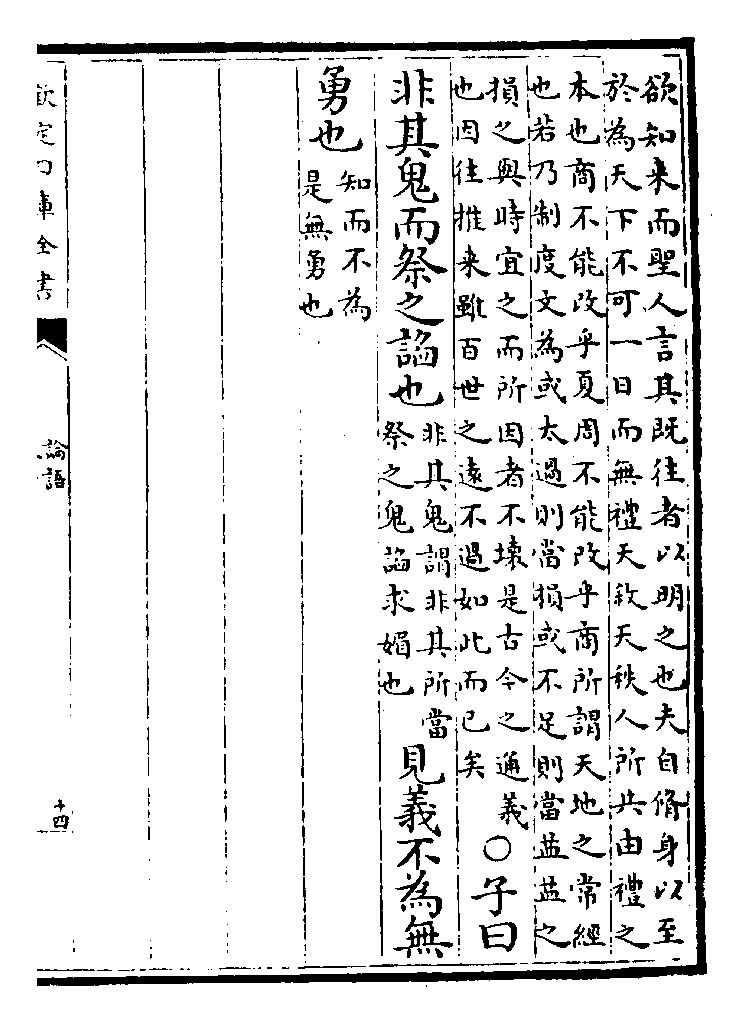 欲知来而聖人言其既往者以明之也夫自脩身以至
於為天下不可一日而無禮天敘天秩人所共由禮之
本也商不能改乎夏周不能改乎商所謂天地之常經
也若乃制度文為或太過則當損或不足則當益益之
損之與時宜之而所因者不壊是古今之通義
也因往推来雖百世之遠不過如此而已矣
○子曰
非其鬼而祭之諂也
非其鬼謂非其所當
祭之鬼諂求媚也
見義不為無
勇也
知而不為
是無勇也
欽定四庫全書
論語
十四